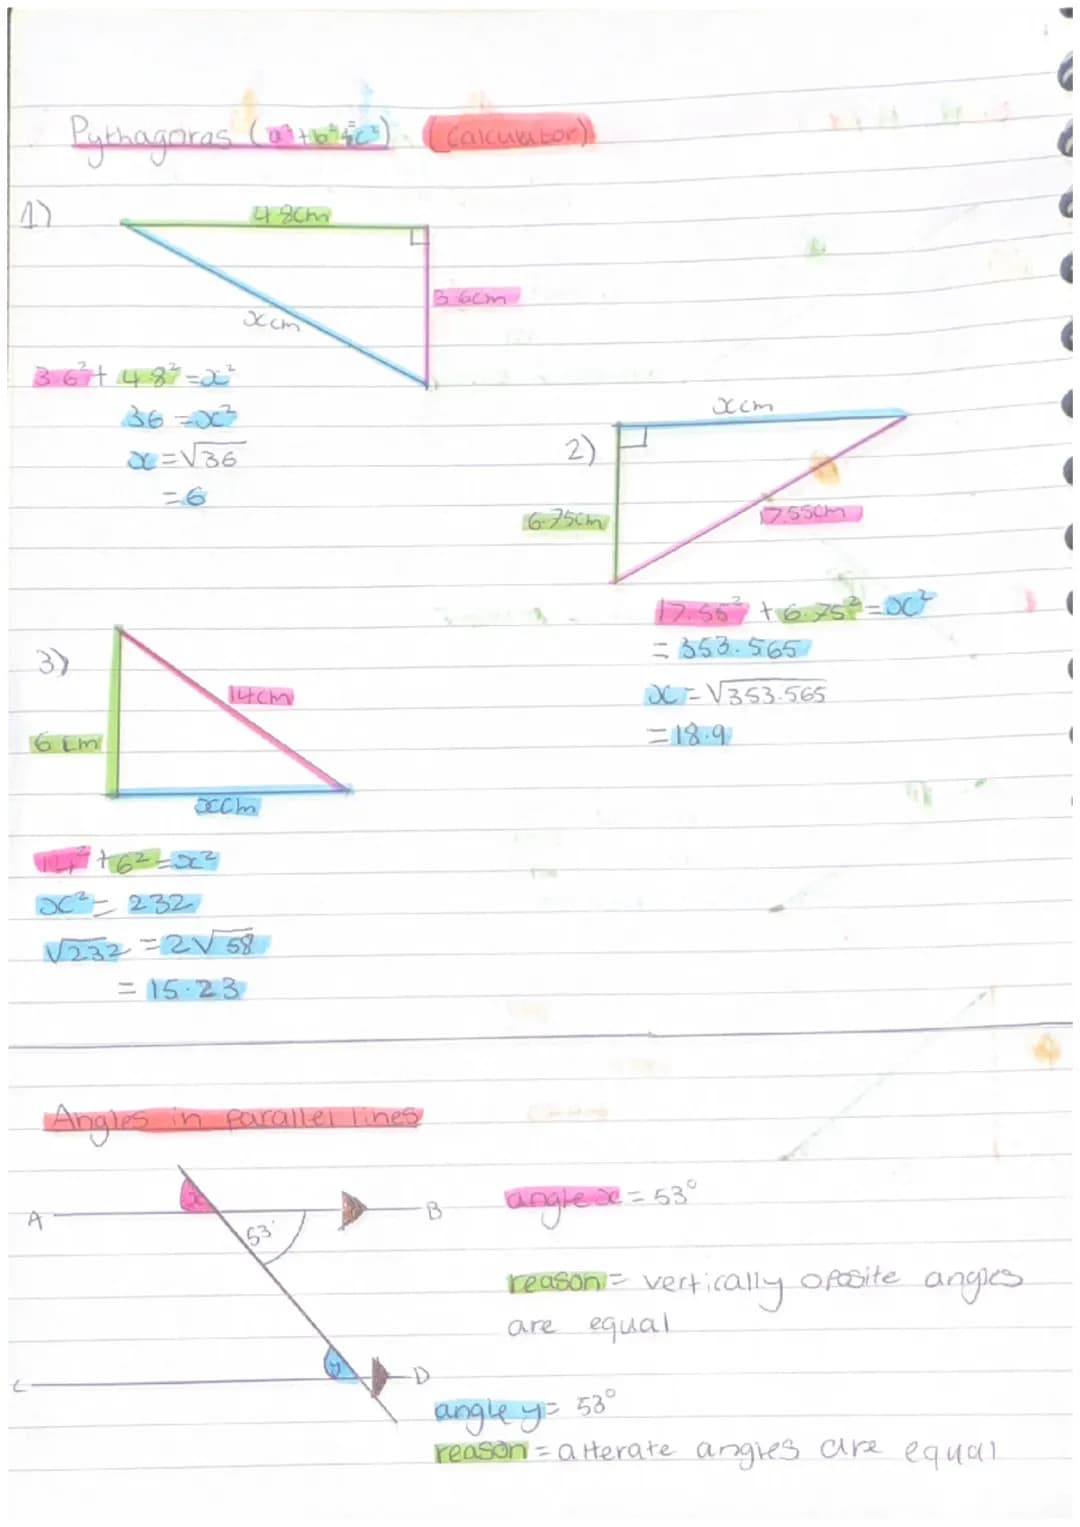 Pythagoras (a²+b²=c²) (Calculator)
1)
4.8cm
3.6cm
xcm
3.6²+4.8²=x²
36=x²
x=√36
=6
2)
xcm
6.75cm
17.55cm
17.55²+6.75²=x²
=353.565
x=√353.565
=18.9
3)
14cm
6cm
xcm
14²+6²=x²
x²=232
√232=2√58
=15.23
Angles in parallel lines
x
A
B
53°
angle x=53°
reason= vertically oposite angles
are equal
y
D
angle y= 53°
reason=alterate angles are equal